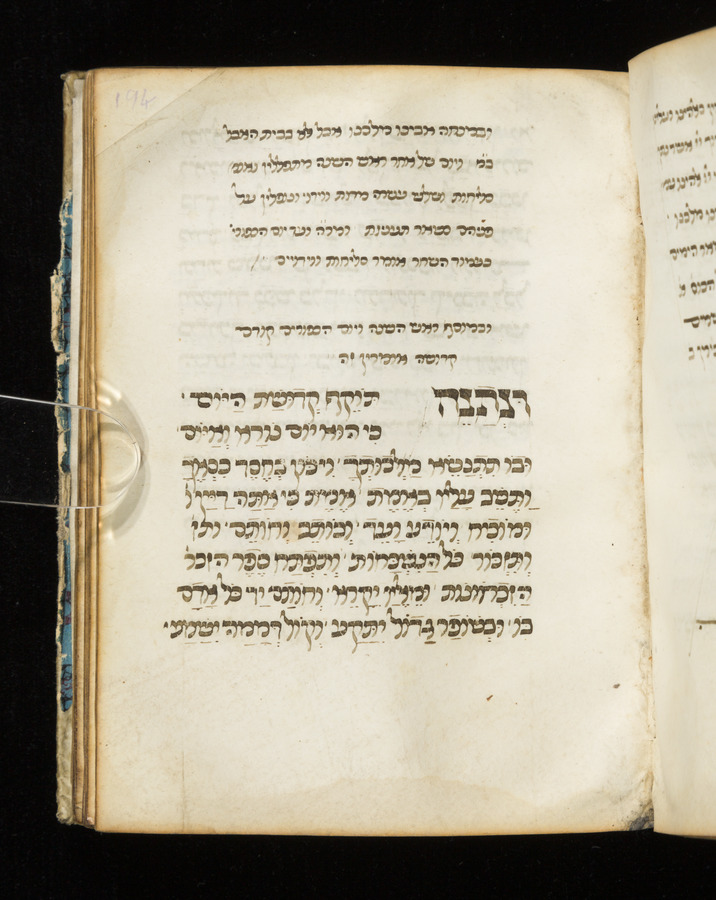 194
ובמנחה אבינו מלכנו אבל לא בבית האבל
יום של אחר ראש השנה מתפללין
סליחות ושלש עשרה מידות ווידוי ונופלין על
פניהם כשאר תעניות וכו׳ עד יום הכפורי׳
בעמוד השחר אומר סליחות
ובמוסף ראש השנה ויום הכפורים קודם
קדושה אומרין זה
וּנְתַנֶּה תוקף קדושת היום ׳
כי הוא יום נורא ואיום
ובו תתנשא מלכותך ׳ ויכון בחסד כסאך
ותשב עליו באמת ׳ אמת כי אתה דיין
ומוכיח ויודע ועד ׳ וכותב וחותם ׳
ותזכור כל הנשכחות ׳ ותפתח ספר
הזכרונות ׳ ומאליו יקרא ׳ וחותם יד כל אדם
בו ׳ ובשופר גדול יתקע ׳ וקול דממה ישמע ׳